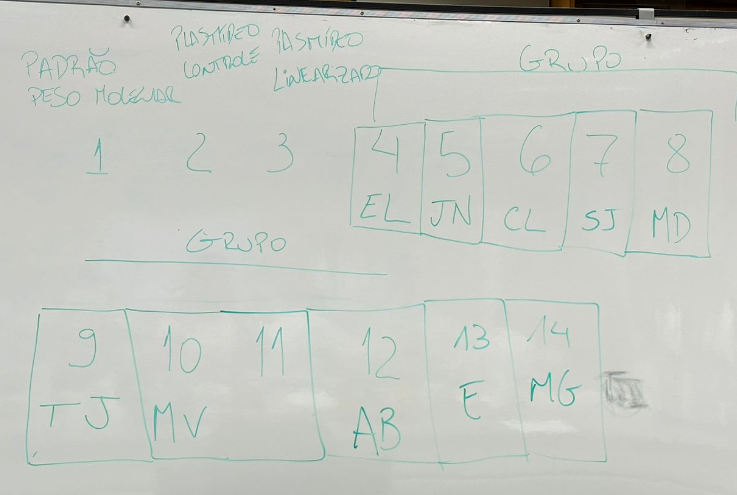 PADRÃO
PESO MOLECULAR
PLASMÍDEO
CONTROLE
PLASMÍDEO
LINEARZADO
GRUPO
1 2 3 4 5 6 7 8
EL JN CL SJ MD
GRUPO
9 10 11 12 13 14
TJ MV AB E MG